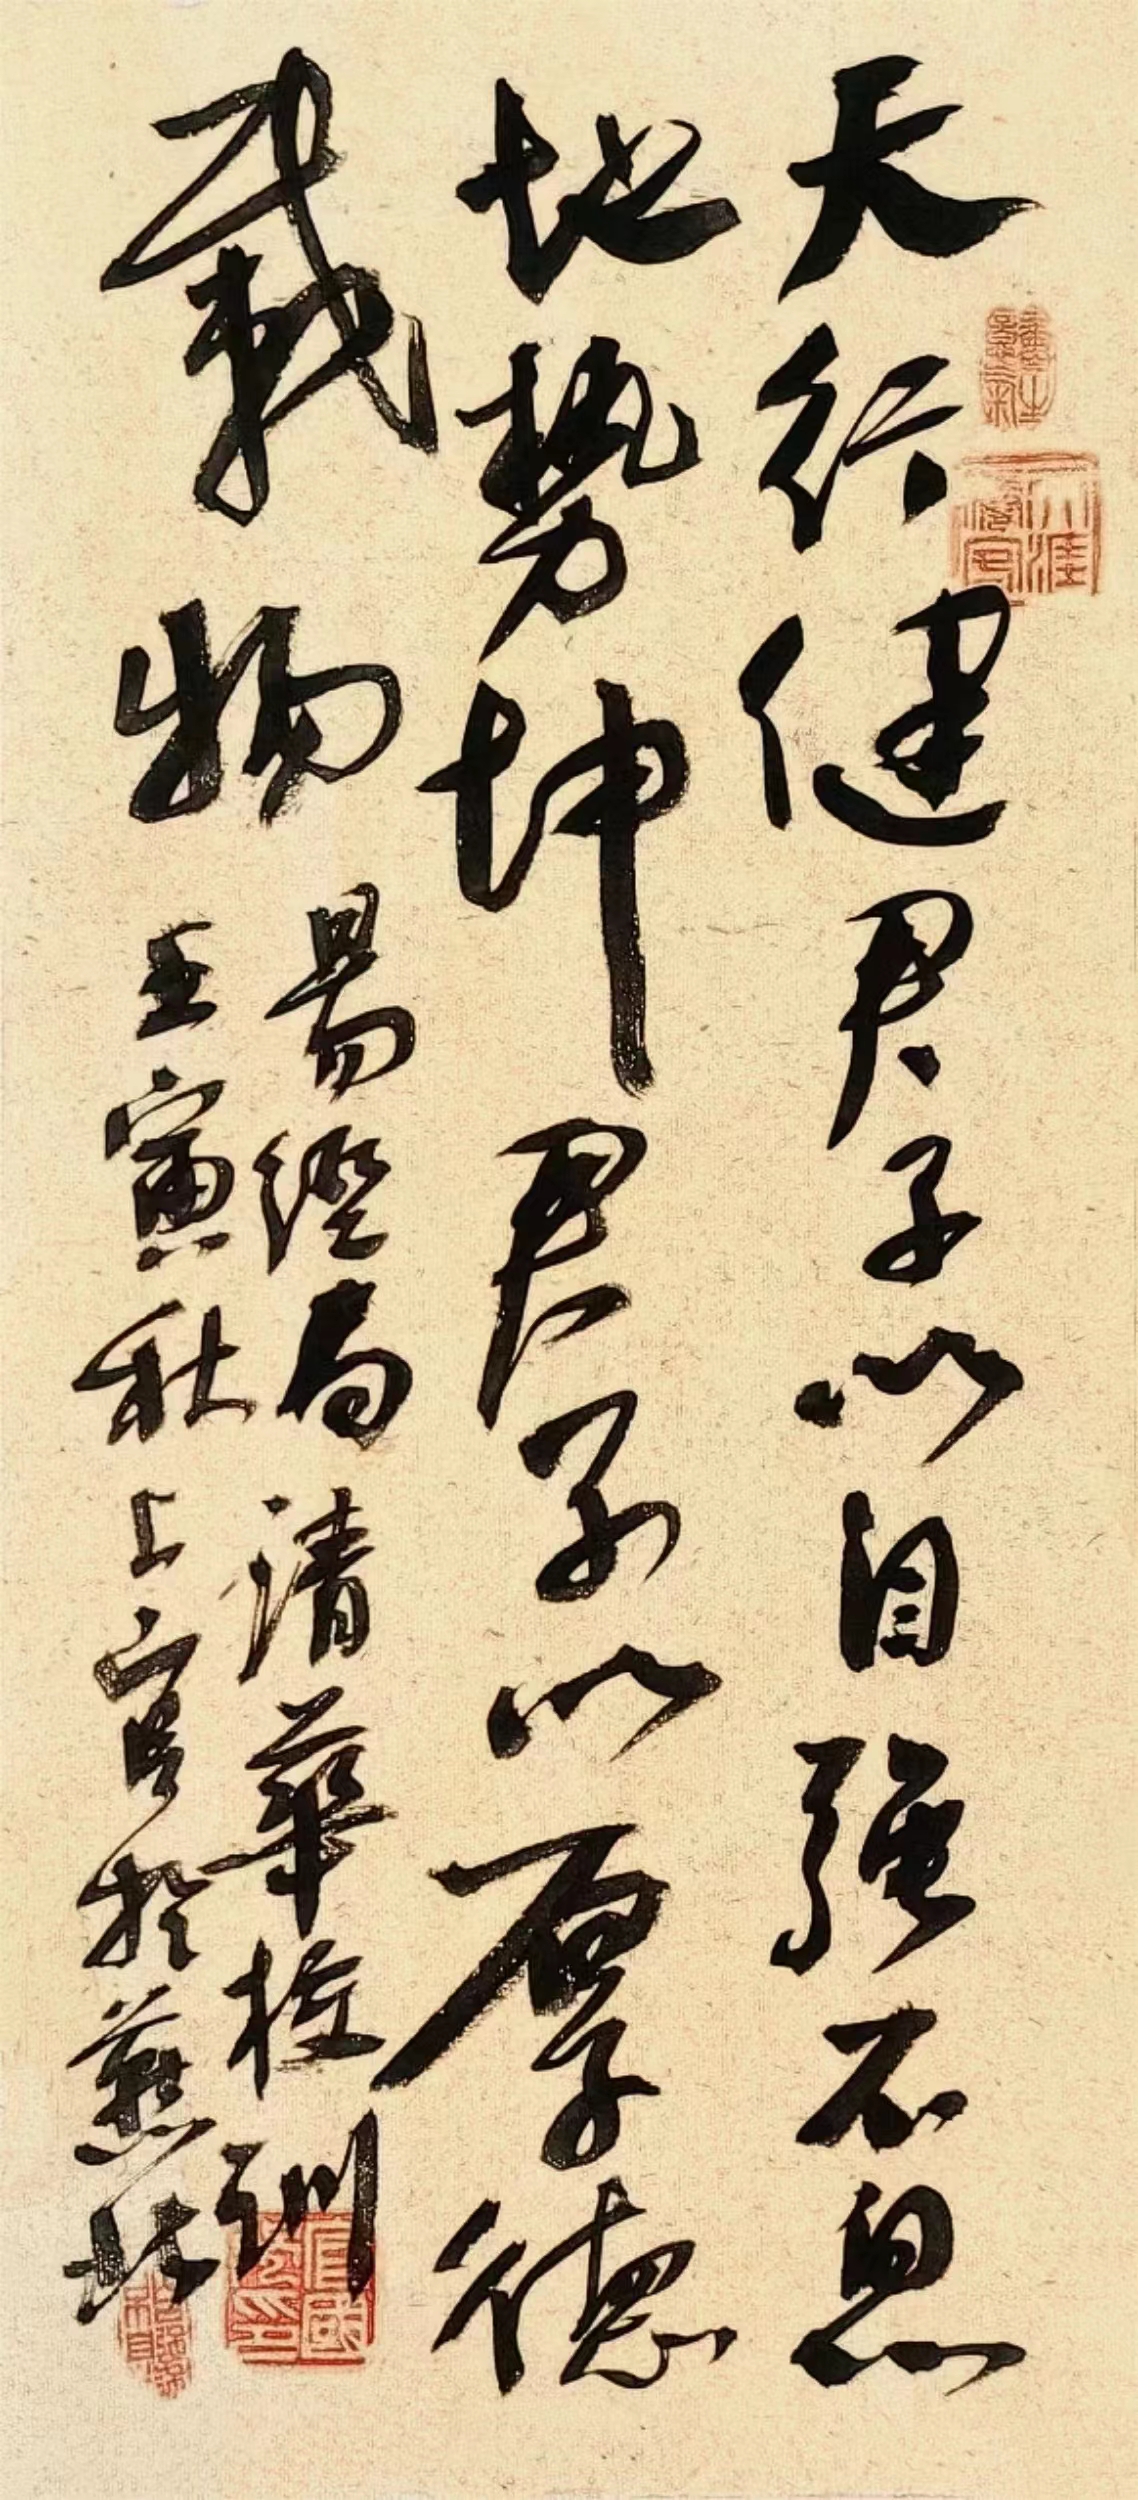 天行健君子以自強不息
地勢坤君子以厚德
載物
易經句清華校訓
壬寅秋上官於燕北